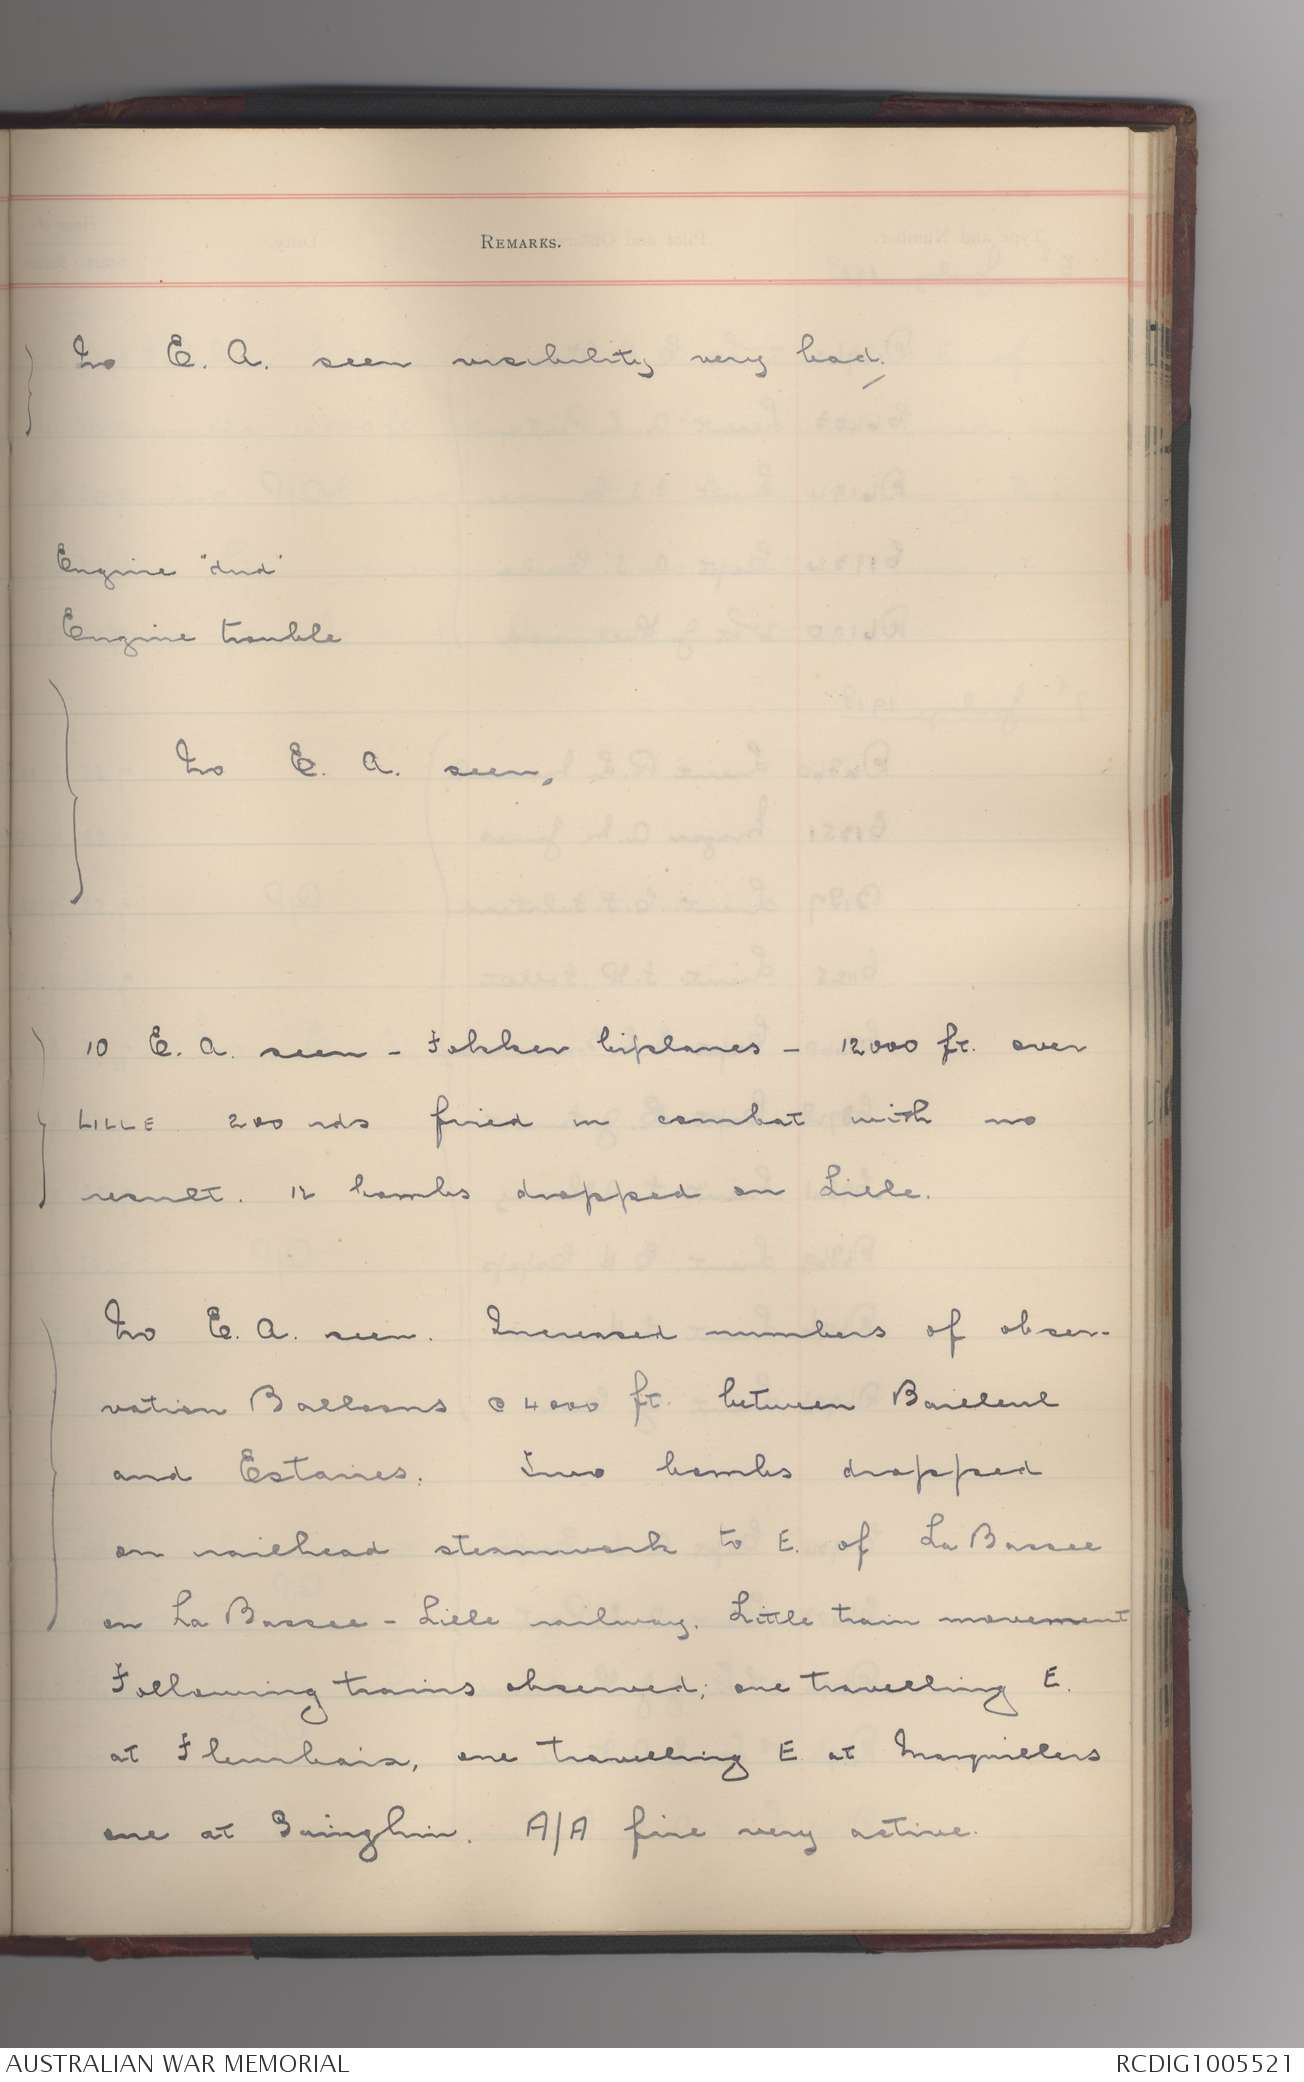 REMARKS.
No E. A. seen visibility very bad.
Engine "dud"
Engine trouble
No E. A. seen.
10 E. A. seen - Fokker biplanes - 12000 ft. over
LILLE 200 rds fired in combat with no
result. 12 bombs dropped on Lille.
No E. A. seen. Increased numbers of obser-
vation Balloons @ 4000 ft. between Bailleul
and Estaires. Two bombs dropped
on railhead steamwork to E. of La Bassee
on La Bassee - Lille railway. Little train movement
Following trains observed; one travelling E.
at Fleurbaix, one travelling E at Marquillers
one at Sainghin. A/A fire very active.
AUSTRALIAN WAR MEMORIAL
RCDIG1005521